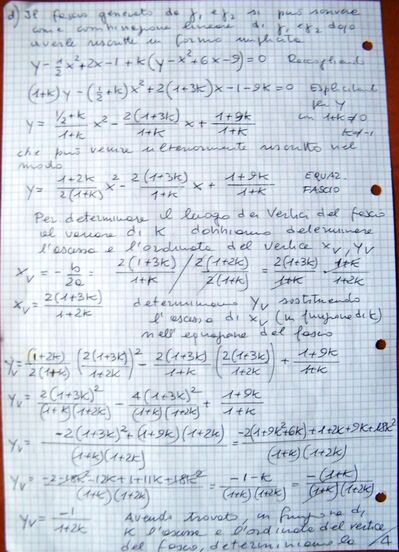 d) Il fascio generato da γ₁ e γ₂ si può scrivere
come combinazione lineare di γ₁ e γ₂ dopo
averle riscritte in forma implicita
y - 1/2 x² + 2x - 1 + k(y - x² + 6x - 9) = 0 Raccogliendo
(1+k)y - (1/2 + k)x² + 2(1+3k)x - 1 - 9k = 0 Esplicitando
per y
y = (1/2+k)/(1+k) x² - 2(1+3k)/(1+k) x + (1+9k)/(1+k) con 1+k≠0
k≠-1
che può venire ulteriormente riscritto nel
modo
y = (1+2k)/(2(1+k)) x² - 2(1+3k)/(1+k) x + (1+9k)/(1+k) EQUAZ.
FASCIO
Per determinare il luogo dei vertici del fascio
al variare di k dobbiamo determinare
l'ascissa e l'ordinata del vertice xᵥ, yᵥ
xᵥ = -b/2a = 2(1+3k)/(1+k) / 2(1+2k)/2(1+k) = 2(1+3k)/(1+k) · (1+k)/(1+2k)
xᵥ = 2(1+3k)/(1+2k) determiniamo yᵥ sostituendo
l'ascissa di xᵥ (in funzione di k)
nell'equazione del fascio
yᵥ = (1+2k)/(2(1+k)) (2(1+3k)/(1+2k))² - 2(1+3k)/(1+k) (2(1+3k)/(1+2k)) + (1+9k)/(1+k)
yᵥ = 2(1+3k)²/((1+k)(1+2k)) - 4(1+3k)²/((1+k)(1+2k)) + (1+9k)/(1+k)
yᵥ = (-2(1+3k)² + (1+9k)(1+2k))/((1+k)(1+2k)) = (-2(1+9k²+6k) + 1+2k+9k+18k²)/((1+k)(1+2k))
yᵥ = (-2-18k²-12k+1+11k+18k²)/((1+k)(1+2k)) = (-1-k)/((1+k)(1+2k)) = -(1+k)/((1+k)(1+2k))
yᵥ = -1/(1+2k) Avendo trovato in funzione di
k l'ascissa e l'ordinata del vertice
del fascio, determiniamo la